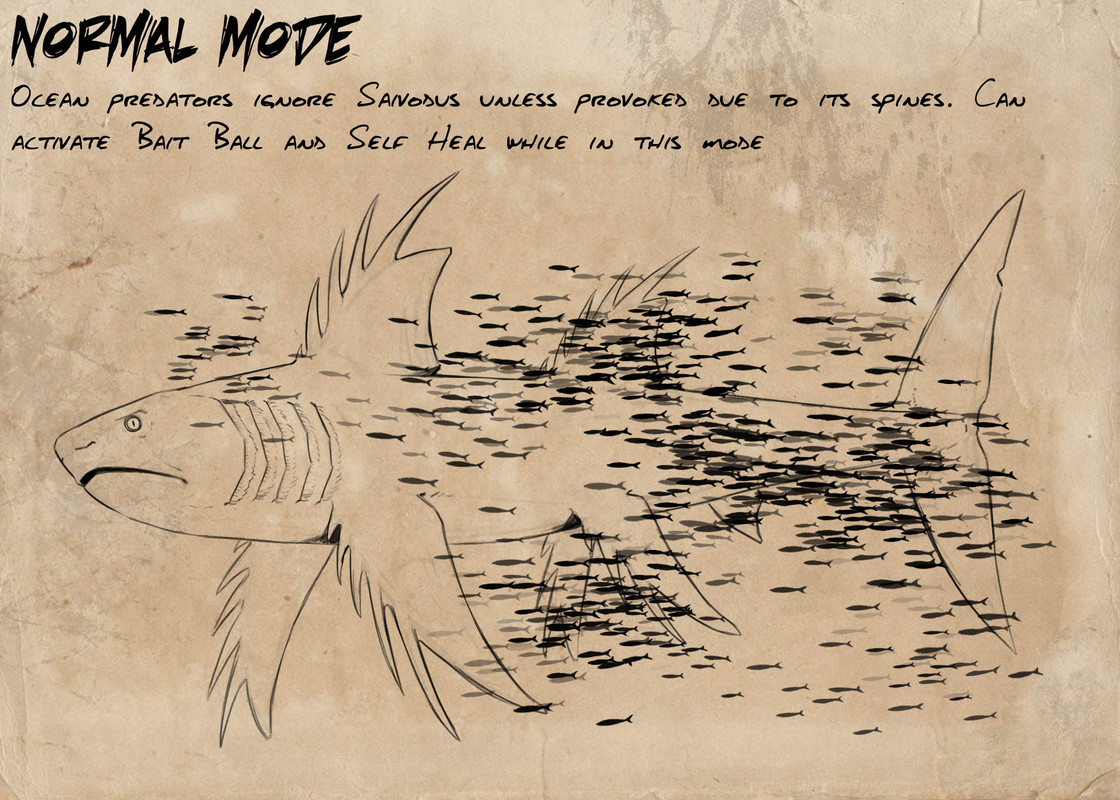 Normal Mode
Ocean predators ignore Saivodus unless provoked due to its spines. Can
activate Bait Ball and Self Heal while in this mode